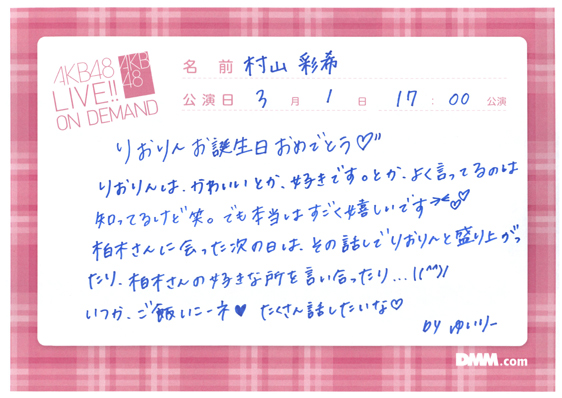 AKB48
LIVE!!
ON DEMAND
AKB
48
名前 村山 彩希
公演日 3月1日 17:00 公演
りおりんお誕生日おめでとう♡"
りおりんは、かわいいとか、好きです。とか、よく言ってるのは
知ってるけど笑。でも本当はすごく嬉しいです
柏木さんに会った次の日は、その話しでりおりんと盛り上がっ
たり、柏木さんの好きな所を言い合ったり...!(^^)!
いつか、ご飯いこーネ♥ たくさん話したいな♡
by ゆいりー
DMM.com